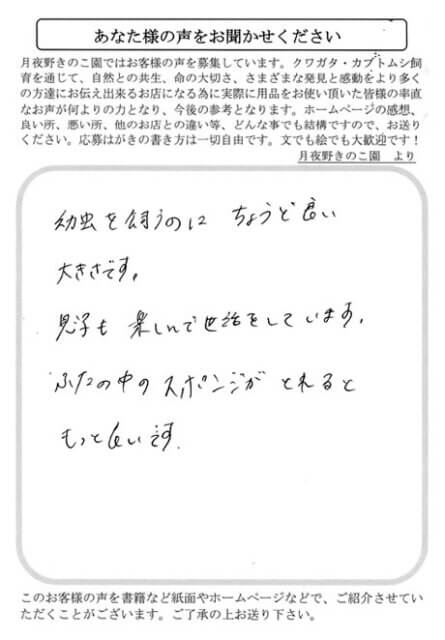 あなた様の声をお聞かせください
月夜野きのこ園ではお客様の声を募集しています。クワガタ・カブトムシ飼
育を通じて、自然との共生、命の大切さ、さまざまな発見と感動をより多く
の方達にお伝え出来るお店になる為に実際に用品をお使い頂いた皆様の率直
なお声が何よりの力となり、今後の参考となります。ホームページの感想、
良い所、悪い所、他のお店との違い等、どんな事でも結構ですので、お送り
ください。応募はがきの書き方は一切自由です。文でも絵でも大歓迎です！
月夜野きのこ園　より
幼虫を飼うのに ちょうど良い
大きさです。
息子も 楽しんで世話をしています。
ふたの中の スポンジが とれると
もっと良いです。
このお客様の声を書籍など紙面やホームページなどで、ご紹介させてい
ただくことがございます。ご了承の上お送り下さい。